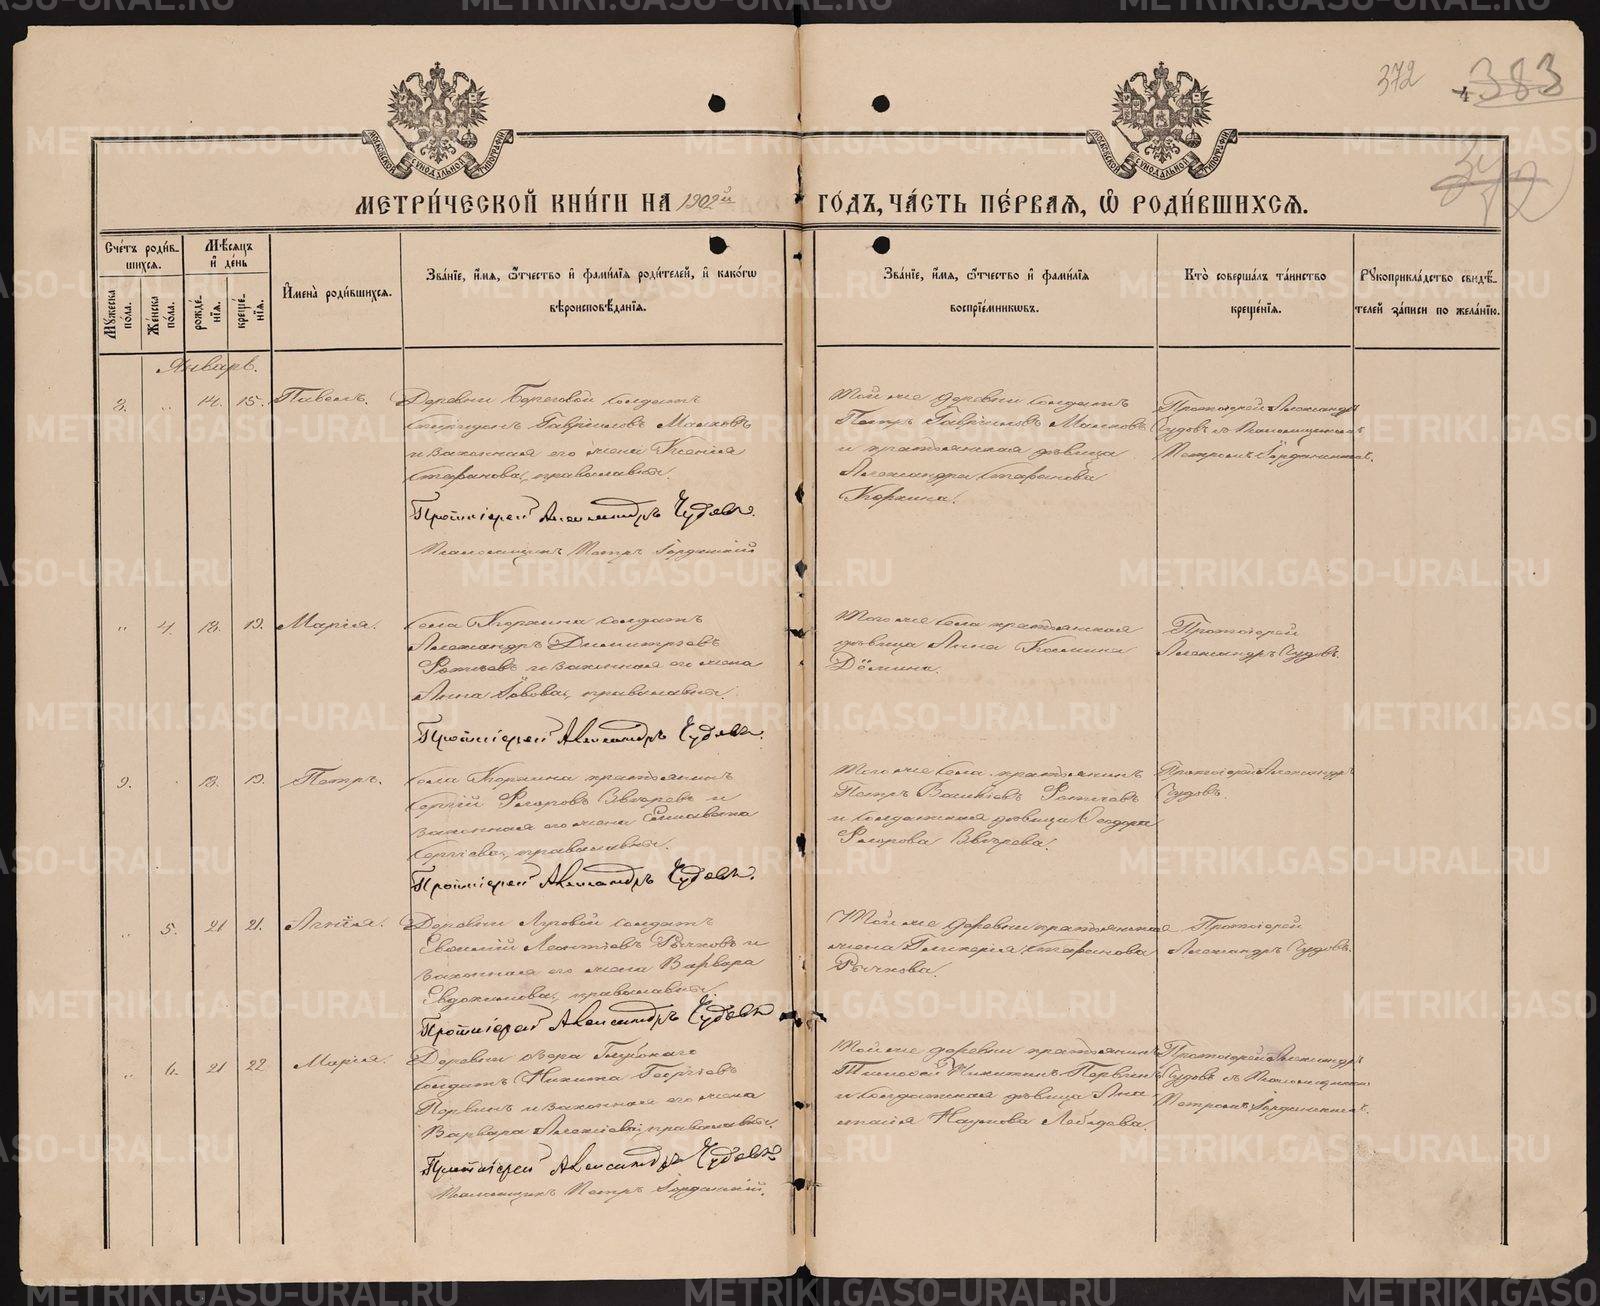 372
4 383
МОСКОВСКОЙ СѴНОДАЛЬНОЙ ТИПОГРАФІИ
МОСКОВСКОЙ СѴНОДАЛЬНОЙ ТИПОГРАФІИ
МЕТРИ́ЧЕСКОЙ КНИ́ГИ НА 1902й ГО́ДЪ, ЧА́СТЬ ПЕ́РВАЯ, Ѡ РОДИ́ВШИХСЯ.
Сче́тъ роди́в-
шихся.
Мѣ́сяцъ
и де́нь
Мꙋжеска
пола.
Же́нска
по́ла.
рожде́-
нїя.
креще́-
нїя.
И҆мена̀ роди́вшихся.
Зва́нїе, и҆́мя, ѻ҆́тчество и҆ фами́лїя роди́телей, и҆ како́гѡ
вѣроисповѣ́данїя.
Зва́нїе, и҆́мя, ѻ҆́тчество и҆ фами́лїя
воспрїе́мникѡвъ.
Кто̀ соверша́лъ та́инство
креще́нїя.
Рꙋкоприкла́дство свидѣ́-
телей за́писи по жела́нїю.
Январь.
2. „ 14. 15. Павелъ.
Деревни Береговой солдатъ
Спиридонъ Гавриловъ Малковъ
и законная его жена Ксенія
Стефанова, православные.
Протоіерей Александръ Чудовъ.
Псаломщикъ Петръ Іорданскій
Той же деревни солдатъ
Петръ Гавриловъ Малковъ
и крестьянская дѣвица
Александра Стефанова
Протоіерей Александръ
Чудовъ съ Псаломщикомъ
Петромъ Іорданскимъ.
„ 4. 18. 19. Марія.
солдатъ
Александръ Димитріевъ
и законная его жена
Анна Львова, православные.
Протоіерей Александръ Чудовъ.
Того же села крестьянская
дѣвица Анна
Дёмина.
Протоіерей
Александръ Чудовъ.
3. „ 18. 19. Петръ.
крестьянинъ
Сергій Флоровъ Звѣревъ и
законная его жена Елисавета
Сергіева, православные.
Протоіерей Александръ Чудовъ.
Того же села крестьянинъ
Петръ
и солдатская дѣвица Ѳеодора
Флорова Звѣрева.
Протоіерей Александръ
Чудовъ.
„ 5. 21 21. Агнія.
Деревни Луговой солдатъ
Евѳимій Леонтіевъ Рычковъ и
законная его жена Варвара
Евдокимова, православные.
Протоіерей Александръ Чудовъ
Той же деревни крестьянская
жена Гликерія Стефанова
Рычкова.
Протоіерей
Александръ Чудовъ.
„ 6. 21 22 Марія.
Деревни озера Глубокаго
солдатъ Никита Георгіевъ
Первинъ и законная его жена
Варвара Алексіева, православные.
Протоіерей Александръ Чудовъ
Псаломщикъ Петръ Іорданскій.
Той же деревни крестьянинъ
Тимоѳей Никитинъ Первинъ
и солдатская дѣвица Ана-
стасія Наумова Лебедева.
Протоіерей Александръ
Чудовъ съ Псаломщикомъ
Петромъ Іорданскимъ.
METRIKI.GASO-URAL.RU